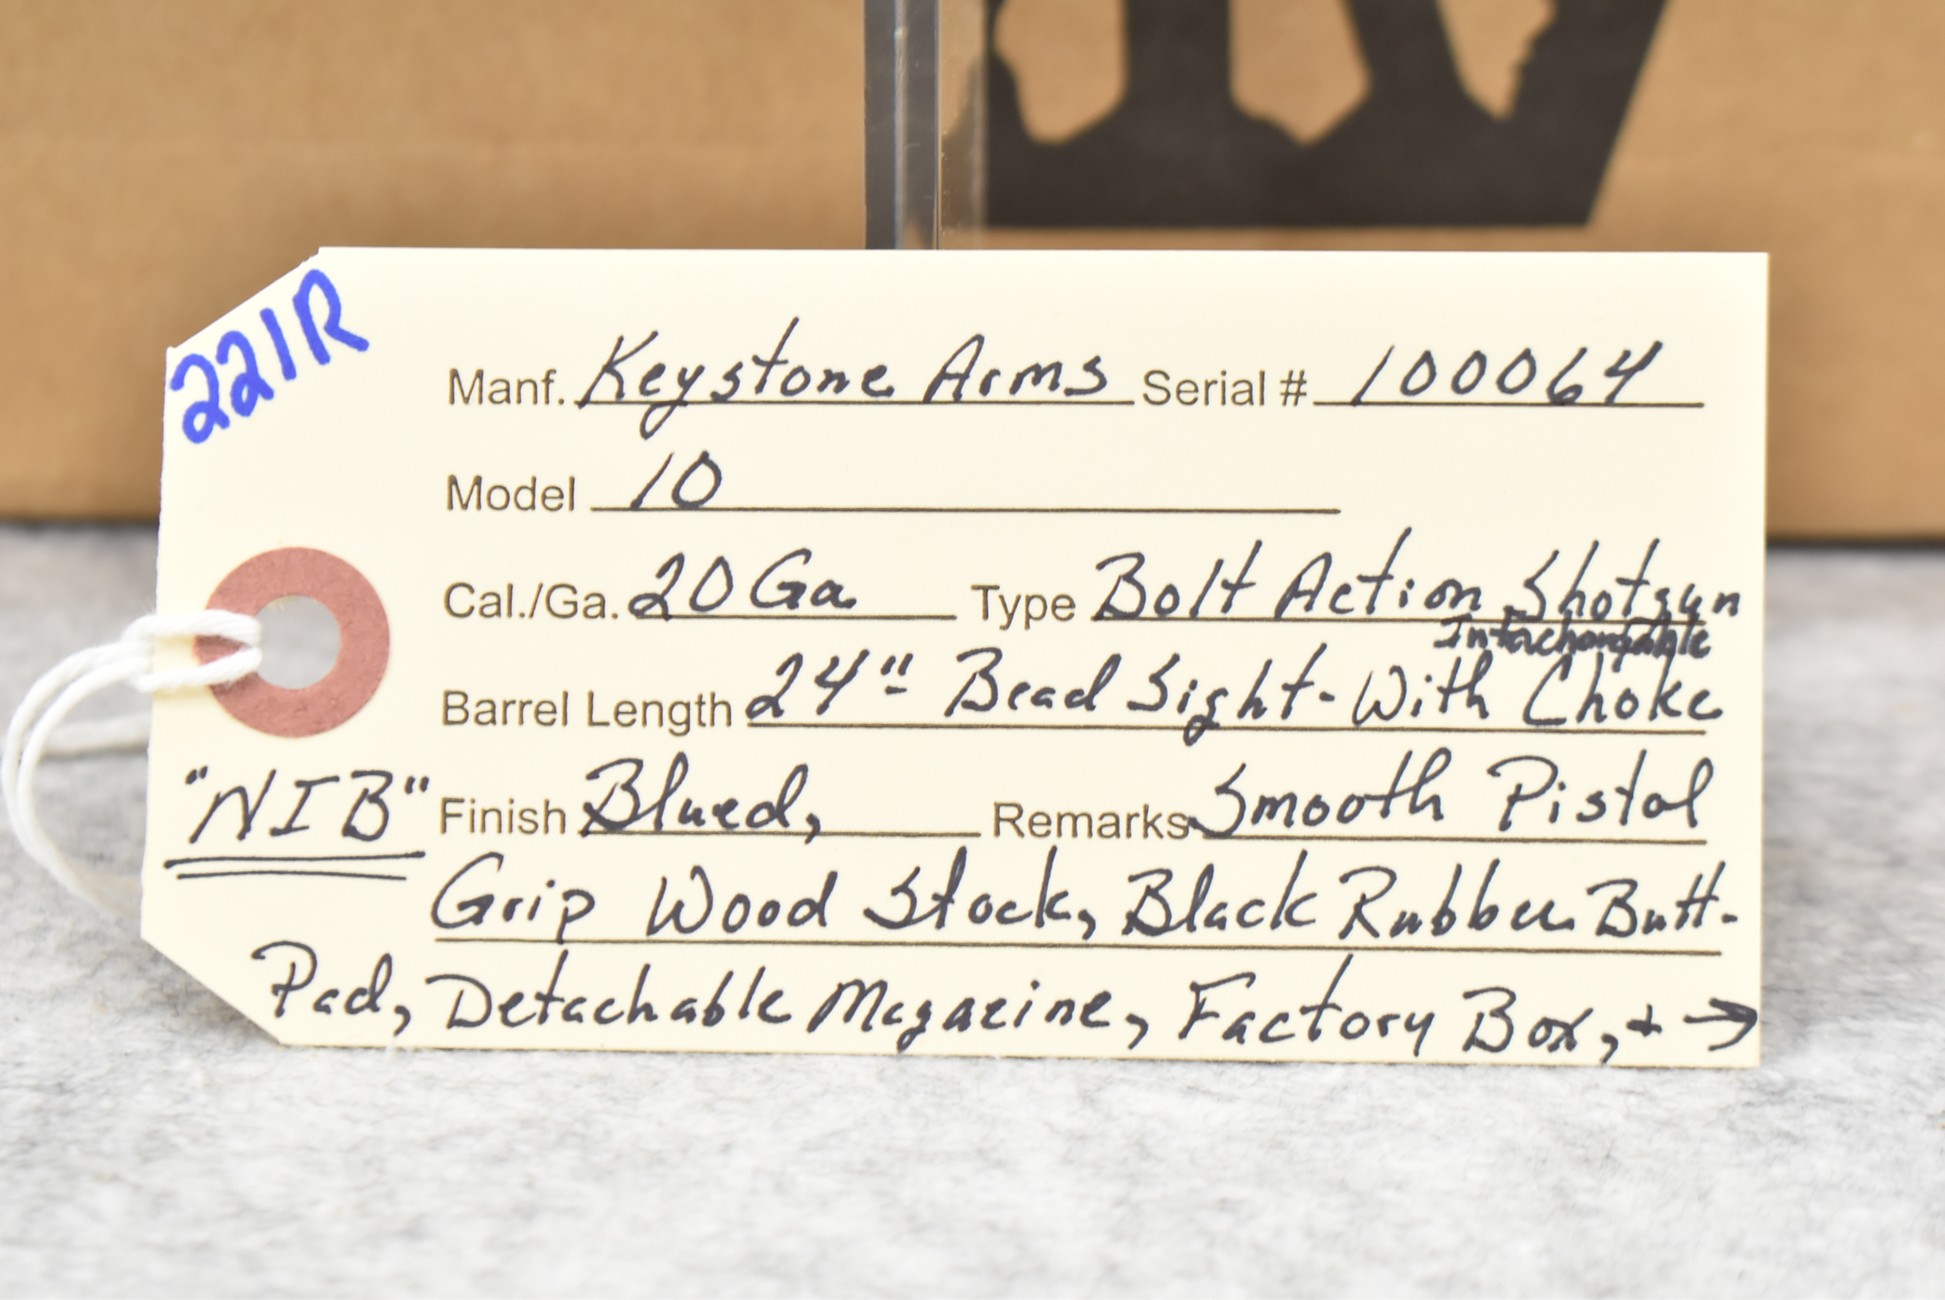 221R
Manf. Keystone Arms Serial # 100064
Model 10
Cal./Ga. 20 Ga. Type Bolt Action Shotgun
Interchangable
Barrel Length 24" Bead Sight - With Choke
"NIB" Finish Blued, Remarks Smooth Pistol
Grip Wood Stock, Black Rubber Butt-
Pad, Detachable Magazine, Factory Box, + →